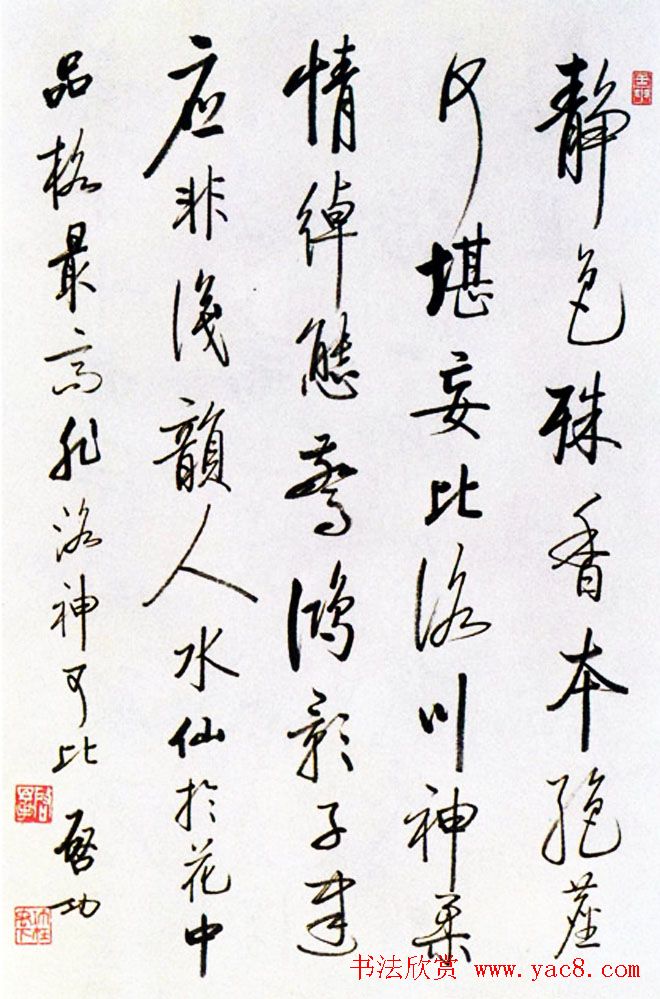 静色殊香本绝尘
何堪妄比洛川神柔
情绰态惊鸿影子建
应非浅韵人水仙於花中
品格最高非洛神可比 启功
书法欣赏 www.yac8.com